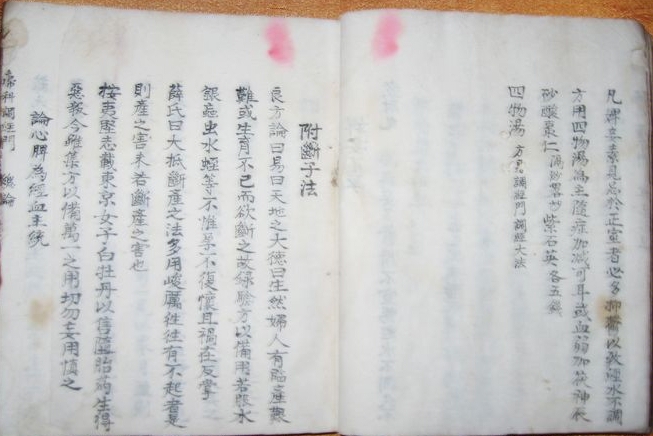 凡婢妾素見忌於正室者必多抑鬱以致經水不調
方用四物湯為主隨症加減可耳或血弱加茯神辰
砂酸棗仁 紫石英各五錢
四物湯 方見調經門調經大法
附斷子法
良方論曰易曰天地之大德曰生然婦人有臨產艱
難或生育不已而欲斷之故錄驗方以備用若服水
銀虻虫水蛭等不惟不復懷且禍在反掌
薛氏曰大抵斷產之法多用峻厲往往有不起者是
則產之害未若斷產之害也
按夷堅志載東京女子白牡丹以售墮胎藥生得
惡報今雖集方以備萬一之用切勿妄用慎之
論心脾為經血主統
婦科調經門 總論